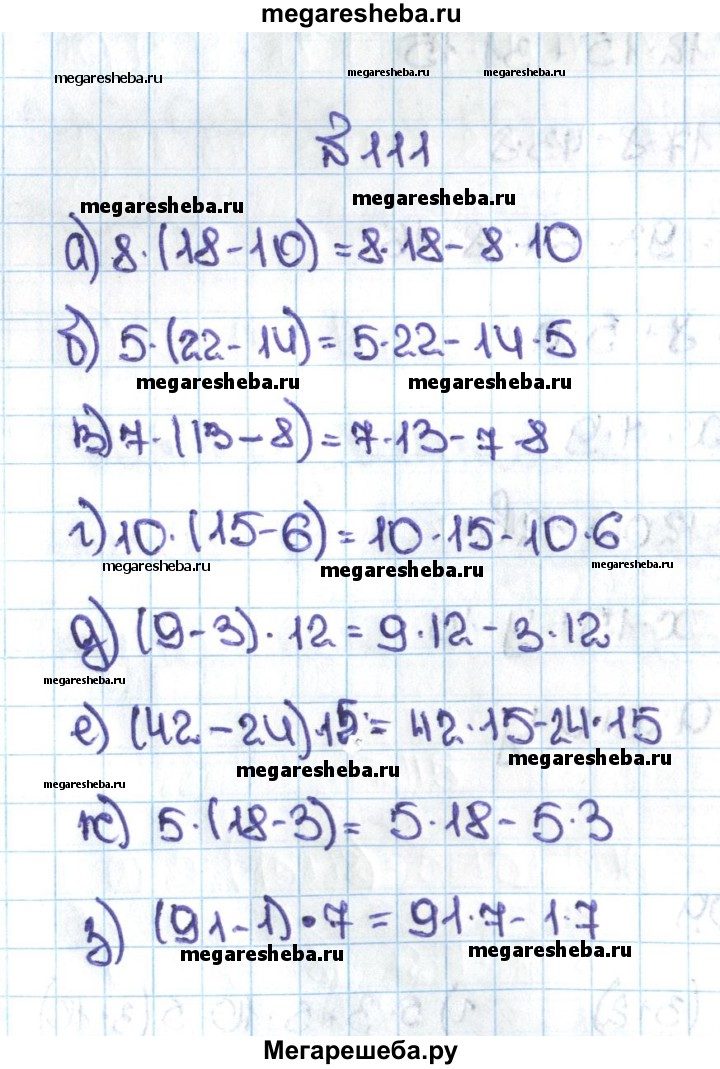 megaresheba.ru
megaresheba.ru megaresheba.ru megaresheba.ru
№ 111
megaresheba.ru megaresheba.ru
а) 8·(18-10) = 8·18 - 8·10
б) 5·(22-14) = 5·22 - 14·5
megaresheba.ru megaresheba.ru
в) 7·(13-8) = 7·13 - 7·8
г) 10·(15-6) = 10·15 - 10·6
megaresheba.ru megaresheba.ru megaresheba.ru
д) (9-3)·12 = 9·12 - 3·12
megaresheba.ru
е) (42-24)·15 = 42·15 - 24·15
megaresheba.ru megaresheba.ru
megaresheba.ru
ж) 5·(18-3) = 5·18 - 5·3
з) (91-1)·7 = 91·7 - 1·7
megaresheba.ru megaresheba.ru
Мегарешеба.ру